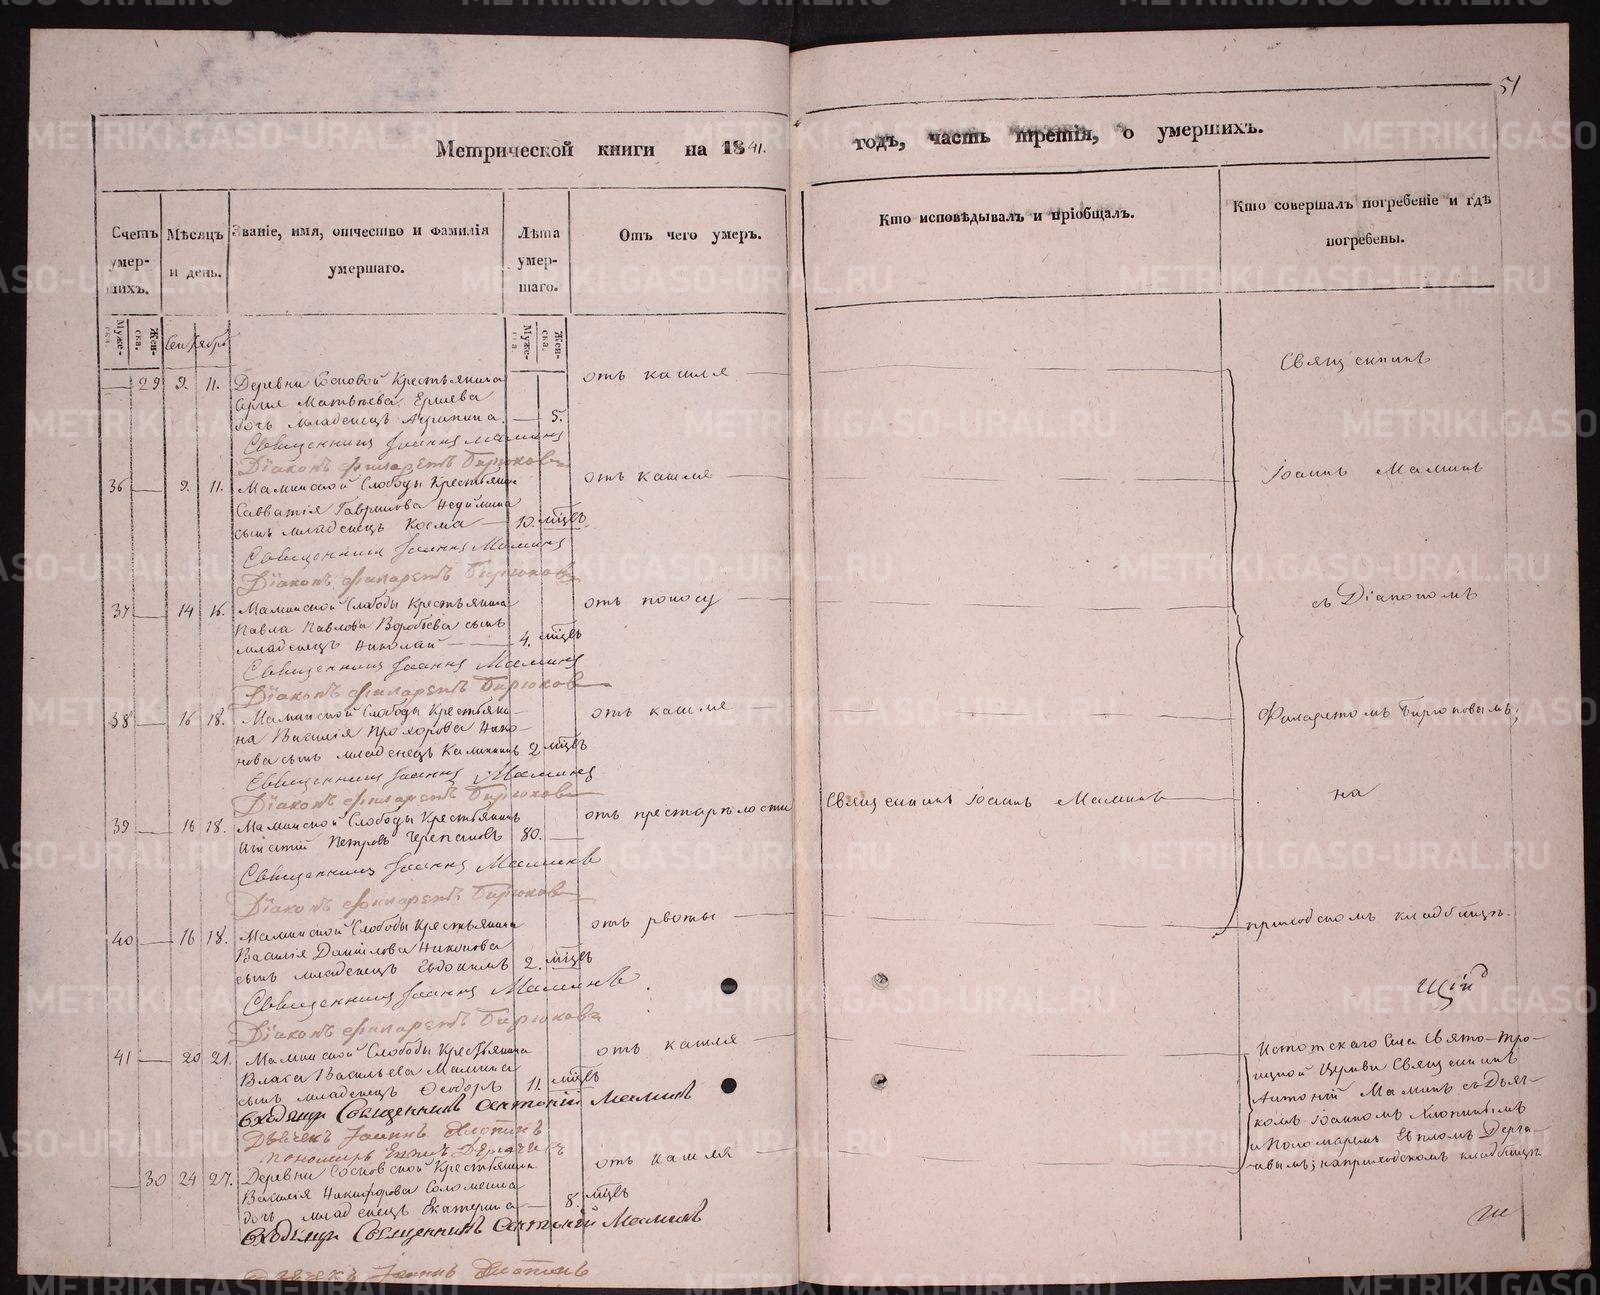 51
Метрической книги на 1841.
годъ, часть третія, о умершихъ.
Счетъ умер-шихъ.
Мѣсяцъ и день.
Званіе, имя, отчество и фамилія умершаго.
Лѣта умер-шаго.
Отъ чего умеръ.
Кто исповѣдывалъ и пріобщалъ.
Кто совершалъ погребеніе и гдѣ погребены.
Муже-ска.
Жен-ска.
Сентябрь
Муже-ска
Жен-ска.
29 9. 11. Деревни Сосновой Крестьянина
Матвѣева
дочь младенецъ 5.
отъ кашля
Священникъ Іоаннъ Маминъ
Діаконъ Филаретъ Бирюковъ
36 9. 11. Маминской Слободы Крестьянина
Савватія Гаврилова
сынъ младенецъ Косма 10. мцъ
отъ кашля
Священникъ Іоаннъ Маминъ
Діаконъ Филаретъ Бирюковъ
37 14 16. Маминской Слободы Крестьянина
Павла Павлова Воробьева сынъ
младенецъ Николай 4. мцъ
отъ поносу
Священникъ Іоаннъ Маминъ
Діаконъ Филаретъ Бирюковъ
38 16 18. Маминской Слободы Крестьяни-
на Василія Прохорова Нико-
нова сынъ младенецъ Каллиникъ 2 мцъ
отъ кашля
Священникъ Іоаннъ Маминъ
Діаконъ Филаретъ Бирюковъ
39 16 18. Маминской Слободы Крестьянинъ
Игнатій Петровъ Черепановъ 80.
отъ престарѣлости
Священникъ Іоаннъ Маминъ
Священникъ Іоаннъ Маминъ
Діаконъ Филаретъ Бирюковъ
40 16 18. Маминской Слободы Крестьянина
Василія Данилова Никонова
сынъ младенецъ Евдокимъ 2. мцъ
отъ рвоты
Священникъ Іоаннъ Маминъ
Діаконъ Филаретъ Бирюковъ
41 20 21. Маминской Слободы Крестьянина
Власа Васильева Мамина
сынъ младенецъ Ѳеодоръ 11. мцъ
отъ кашля
Священникъ Антоній Маминъ
Дьячекъ Іоаннъ Хлопинъ
Пономарь
30 24 27. Деревни Сосновской Крестьянина
Василія Никифорова Соломеина
дочь младенецъ Екатерина 8. мцъ
отъ кашля
Священникъ Антоній Маминъ
Дьячекъ Іоаннъ Хлопинъ
Священникъ
Іоаннъ Маминъ
съ Діакономъ
Филаретомъ Бирюковымъ;
на
приходскомъ кладбищѣ.
Истотскаго Села Свято-Тро-
ицкой Церкви Священникъ
Антоній Маминъ съ Дьяч-
комъ Іоанномъ Хлопинымъ
и Пономаремъ
на приходскомъ кладбищѣ
METRIKI.GASO-URAL.RU